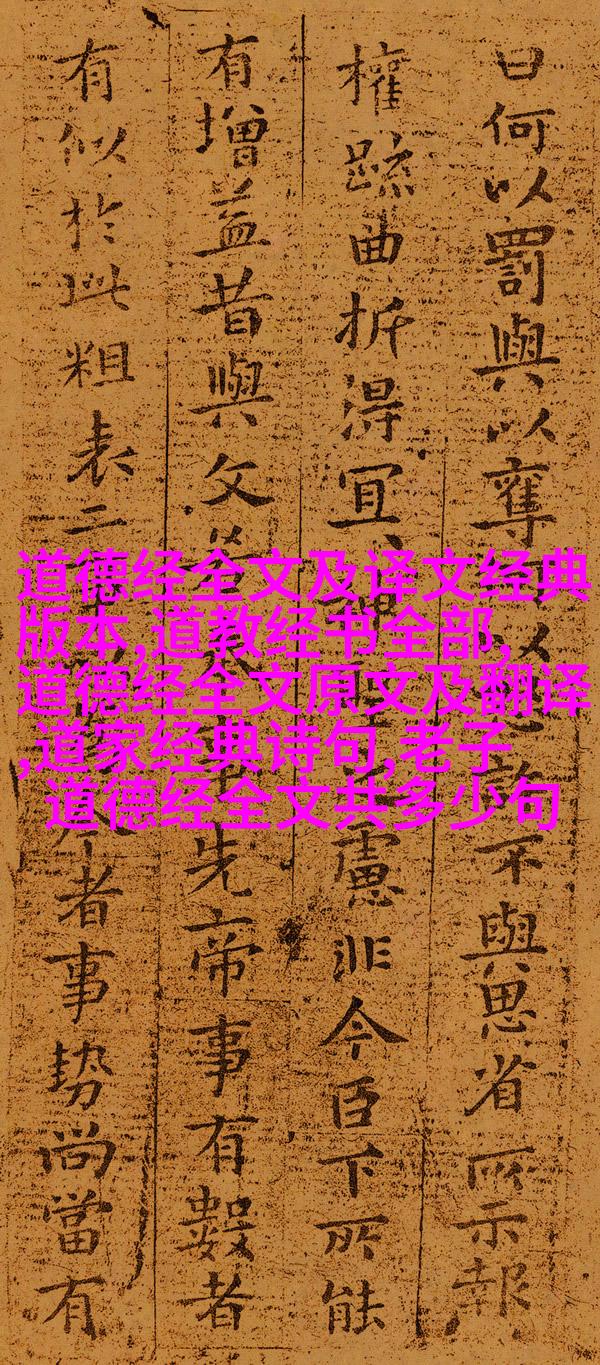 曰何以罰與以奪以許不與思省所示報
權疏曲折得宜慮非今臣下所能
有增益昔與文若先帝事有數者
有似於此粗表二者事勢尚當有
道德经全文及译文经典
版本,道教经书全部,
道德经全文原文及翻译
,道家经典诗句,老子
道德经全文共多少句